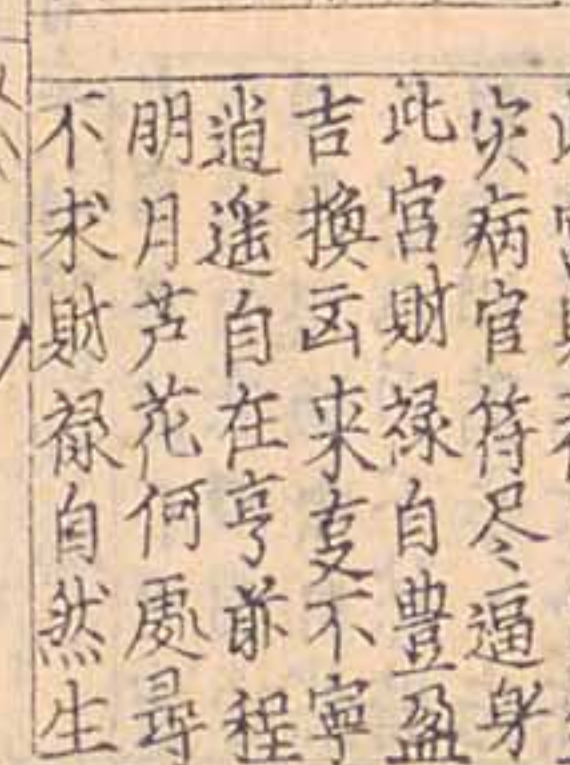 灾病官符尽逼身
此宫財禄自豊盈
吉換凶来变不寧
逍遥自在亨前程
明月芦花何處尋
不求財禄自然生